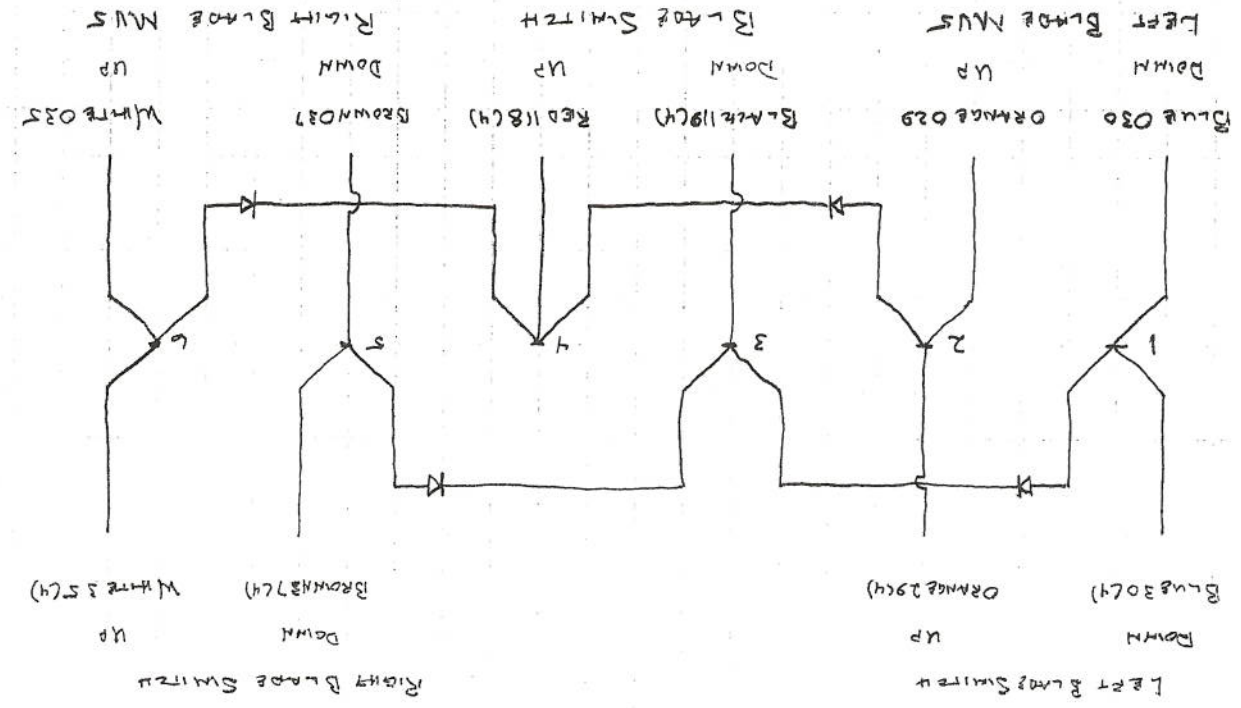 LEFT BLADE SWITCH RIGHT BLADE SWITCH
DOWN UP DOWN UP
BLUE 30(4) ORANGE 29(4) BROWN 37(4) WHITE 35(4)
1 2 3 4 5 6
BLUE 030 ORANGE 029 BLACK 119(4) RED 118(4) BROWN 037 WHITE 035
DOWN UP DOWN UP DOWN UP
LEFT BLADE MVS BLADE SWITCH RIGHT BLADE MVS